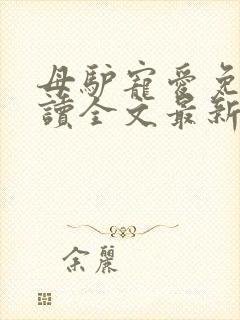 母驴寵愛免
讀全文最新
余麗